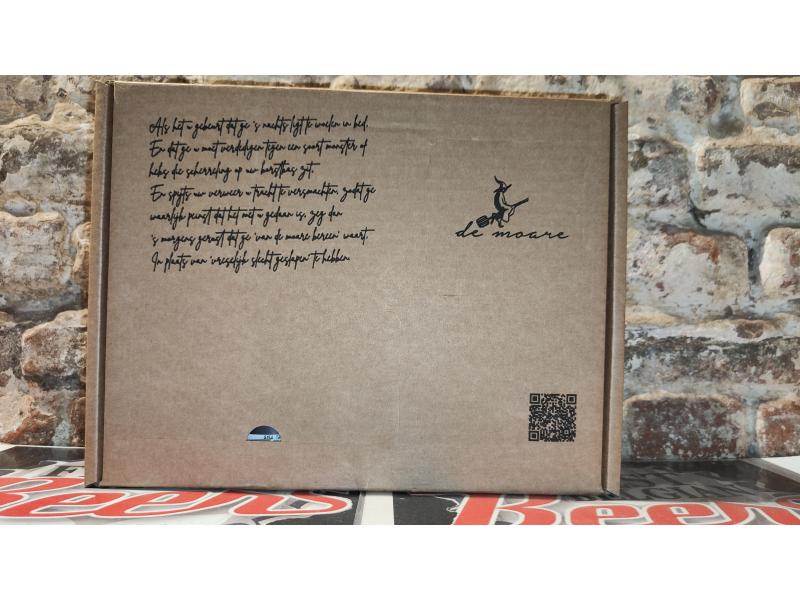 Als het u gebeurt dat ge 's nachts ligt te woelen in bed,
En dat ge u moet verdedigen tegen een soort monster of
heks die scherrelings op uw borstkas zit.
En spijts uw verweer u tracht te versmachten, zodat ge
waarlijk peinst dat het met u gedaan is, zeg dan
's morgens gerust dat ge 'van de moare bereen' waart.
In plaats van 'vreselijk slecht geslapen' te hebben.
de moare
Beers
Beers